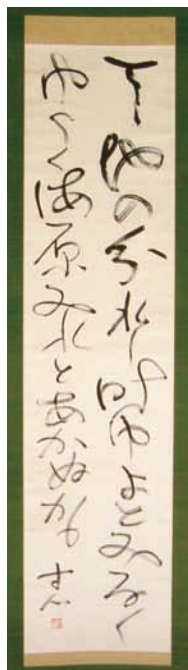 天地の分れし時ゆよとみなく
ゆらく海原みれとあかぬかも 寸心